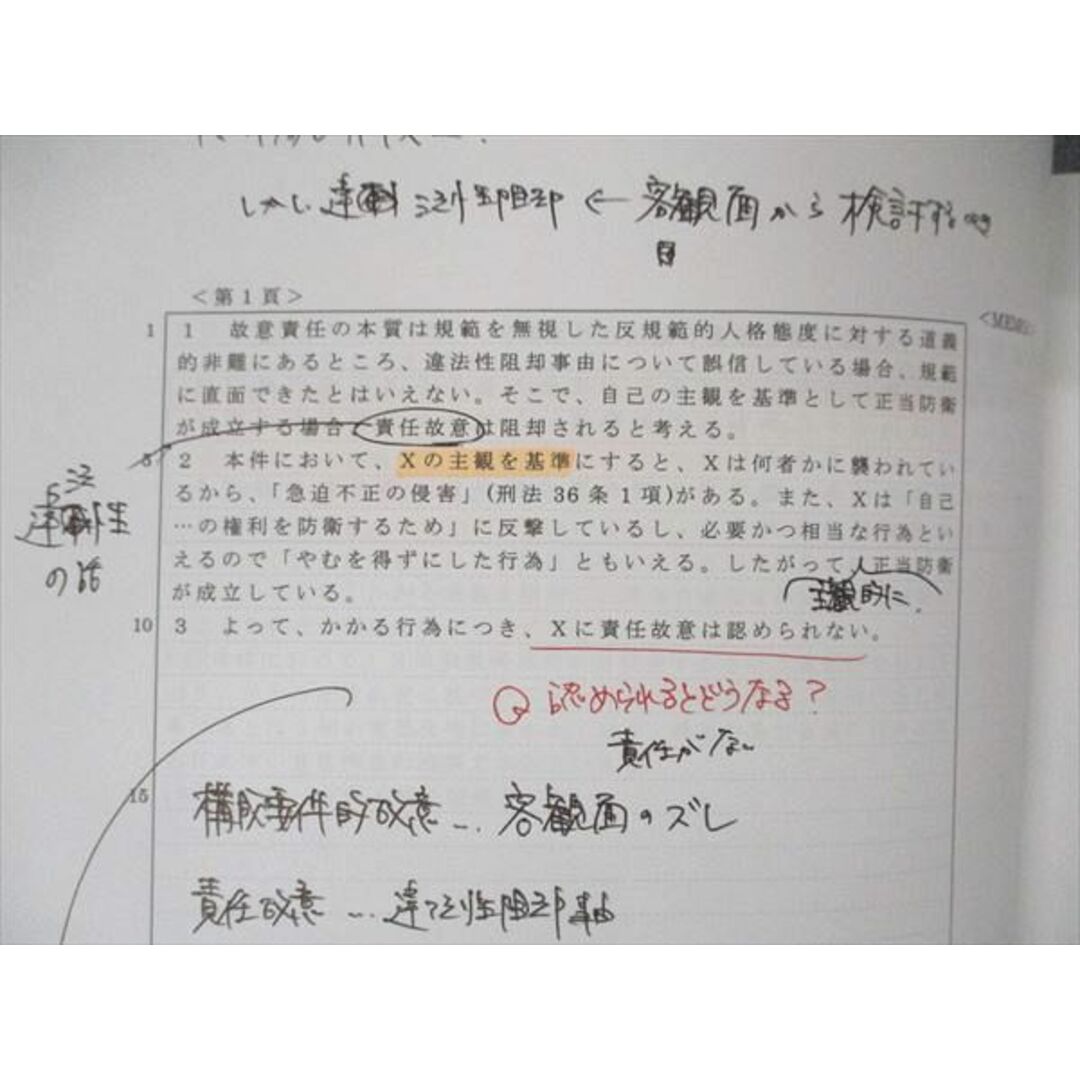 しかし 違法性阻却 ← 客観面から検討する
<第1頁>
<MEMO>
1 1 故意責任の本質は規範を無視した反規範的人格態度に対する道義
的非難にあるところ、違法性阻却事由について誤信している場合、規範
に直面できたとはいえない。そこで、自己の主観を基準として正当防衛
が成立する場合、責任故意は阻却されると考える。
5 2 本件において、Xの主観を基準にすると、Xは何者かに襲われてい
るから、「急迫不正の侵害」(刑法36条1項)がある。また、Xは「自己
…の権利を防衛するため」に反撃しているし、必要かつ相当な行為とい
えるので「やむを得ずにした行為」ともいえる。したがって、正当防衛
が成立している。
主観的に
違法性
の話
10 3 よって、かかる行為につき、Xに責任故意は認められない。
Q 認められるとどうなる?
責任がない
15
構成要件的故意… 客観面のズレ
責任故意 … 違法性阻却事由